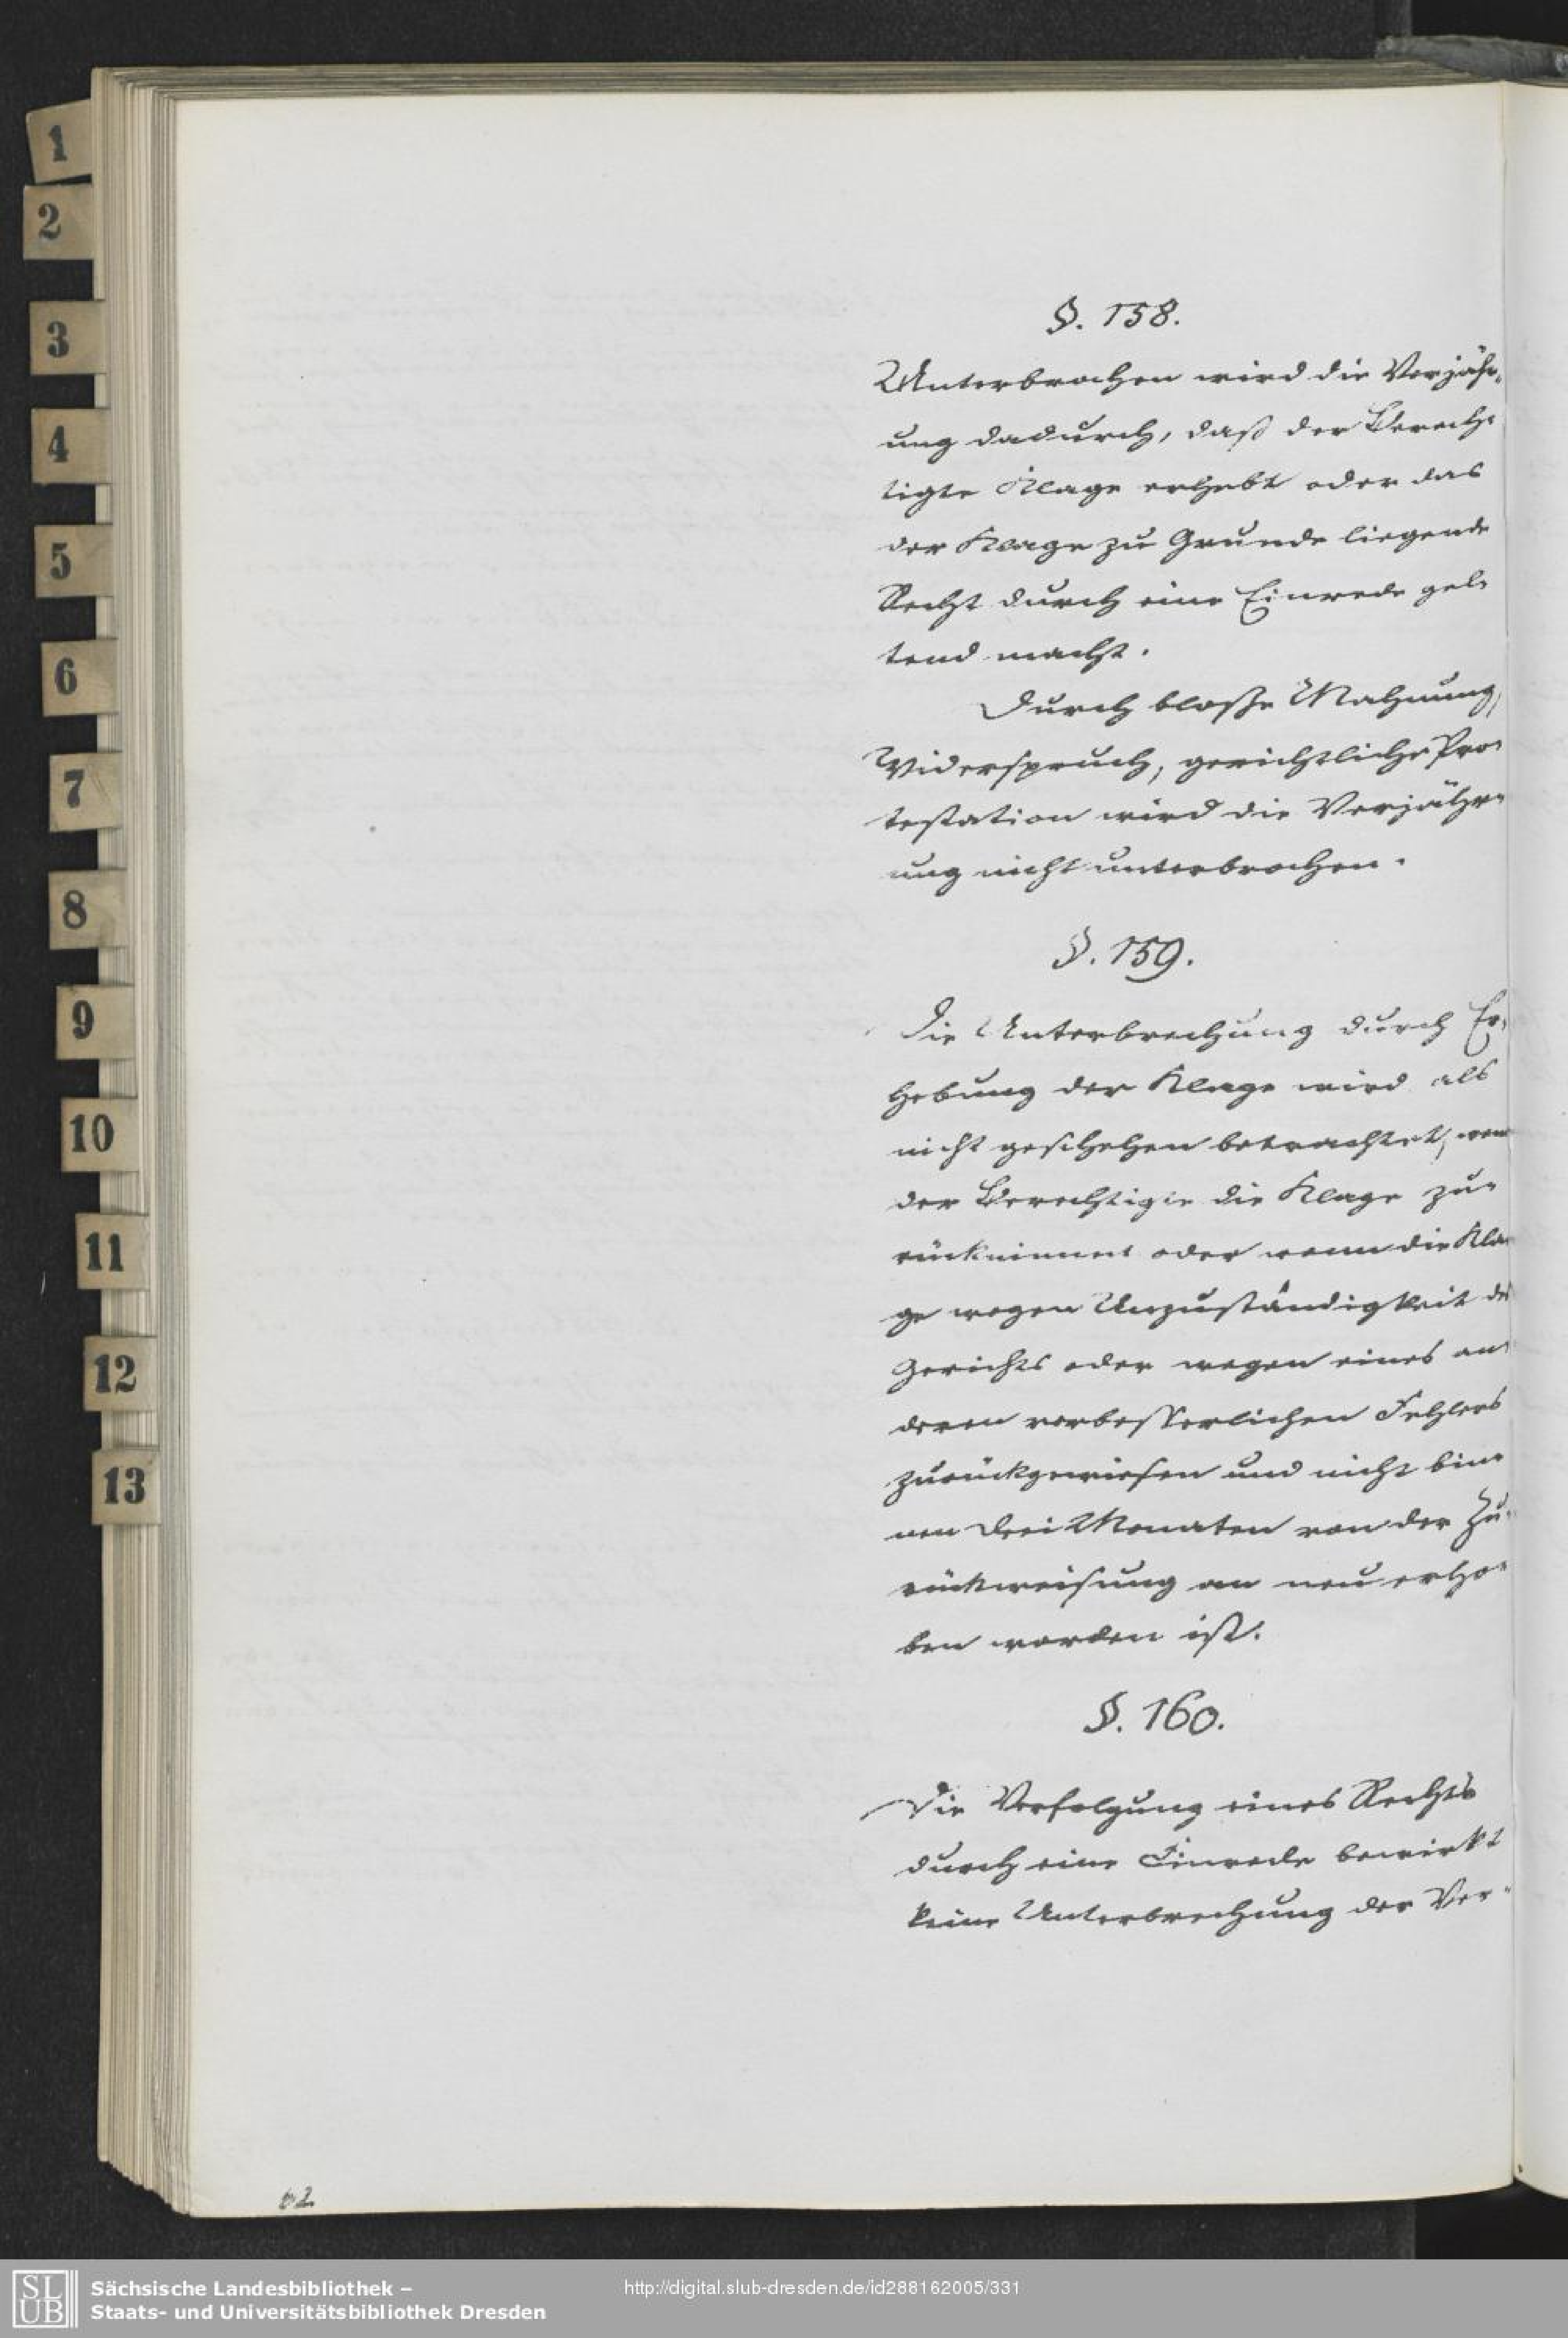 1
2
3
4
5
6
7
8
9
10
11
12
13
§. 158.
Unterbrochen wird die Verjähr-
ung dadurch, daß der Berech-
tigte Klage erhebt oder das
der Klage zu Grunde liegende
Recht durch eine Einrede gel-
tend macht.
Durch bloße Mahnung,
Widerspruch, gerichtliche Pro-
testation wird die Verjähr-
ung nicht unterbrochen.
§. 159.
Die Unterbrechung durch Er-
hebung der Klage wird als
nicht geschehen betrachtet, wenn
der Berechtigte die Klage zu-
rücknimmt oder wenn die Kla-
ge wegen Unzuständigkeit des
Gerichts oder wegen eines an-
deren verbesserlichen Fehlers
zurückgewiesen und nicht bin-
nen drei Monaten von der Zu-
rückweisung an neu erho-
ben worden ist.
§. 160.
Die Verfolgung eines Rechts
durch eine Einrede bewirkt
keine Unterbrechung der Ver-
62
SLUB
Sächsische Landesbibliothek –
Staats- und Universitätsbibliothek Dresden
http://digital.slub-dresden.de/id288162005/331